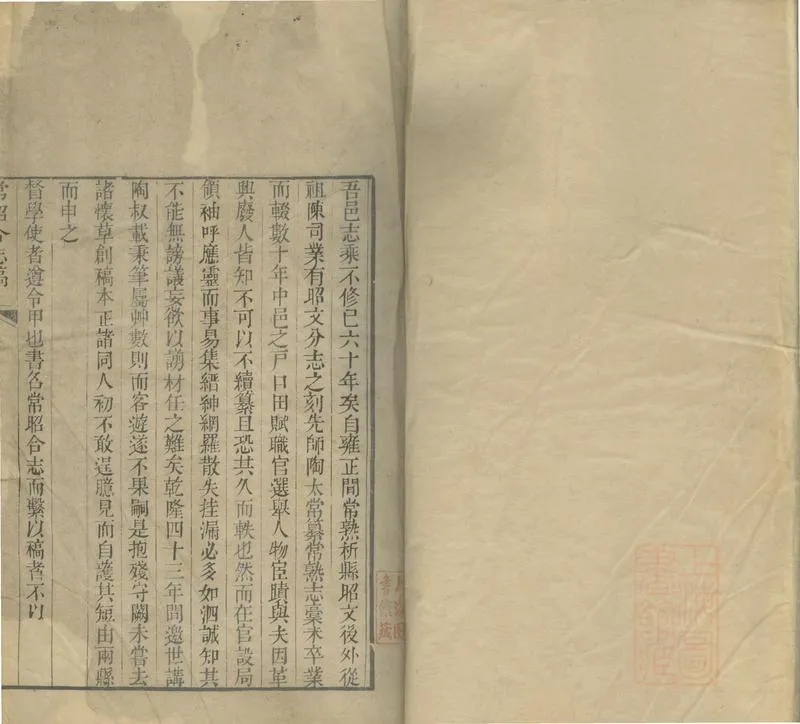 吾邑志乘不修已六十年矣自雍正間常熟析縣昭文後外從
祖陳司業有昭文分志之刻先師陶太常纂常熟志稾未卒業
而輟數十年中邑之戸口田賦職官選舉人物宦蹟與夫因革
興廢人皆知不可以不續纂且恐其久而軼也然而在官設局
領袖呼應靈而事易集縉紳網羅散失挂漏必多如泗誠知其
不能無謗議妄欲以謭材任之難矣乾隆四十三年間邀世講
陶叔載秉筆屬艸數則而客遊遂不果嗣是抱殘守闕未嘗去
諸懷草創稿本正諸同人初不敢逞臆見而自護其短由兩縣
而申之
督學使者遵令甲也書名常昭合志而繫以稿者不以
常昭合志稿